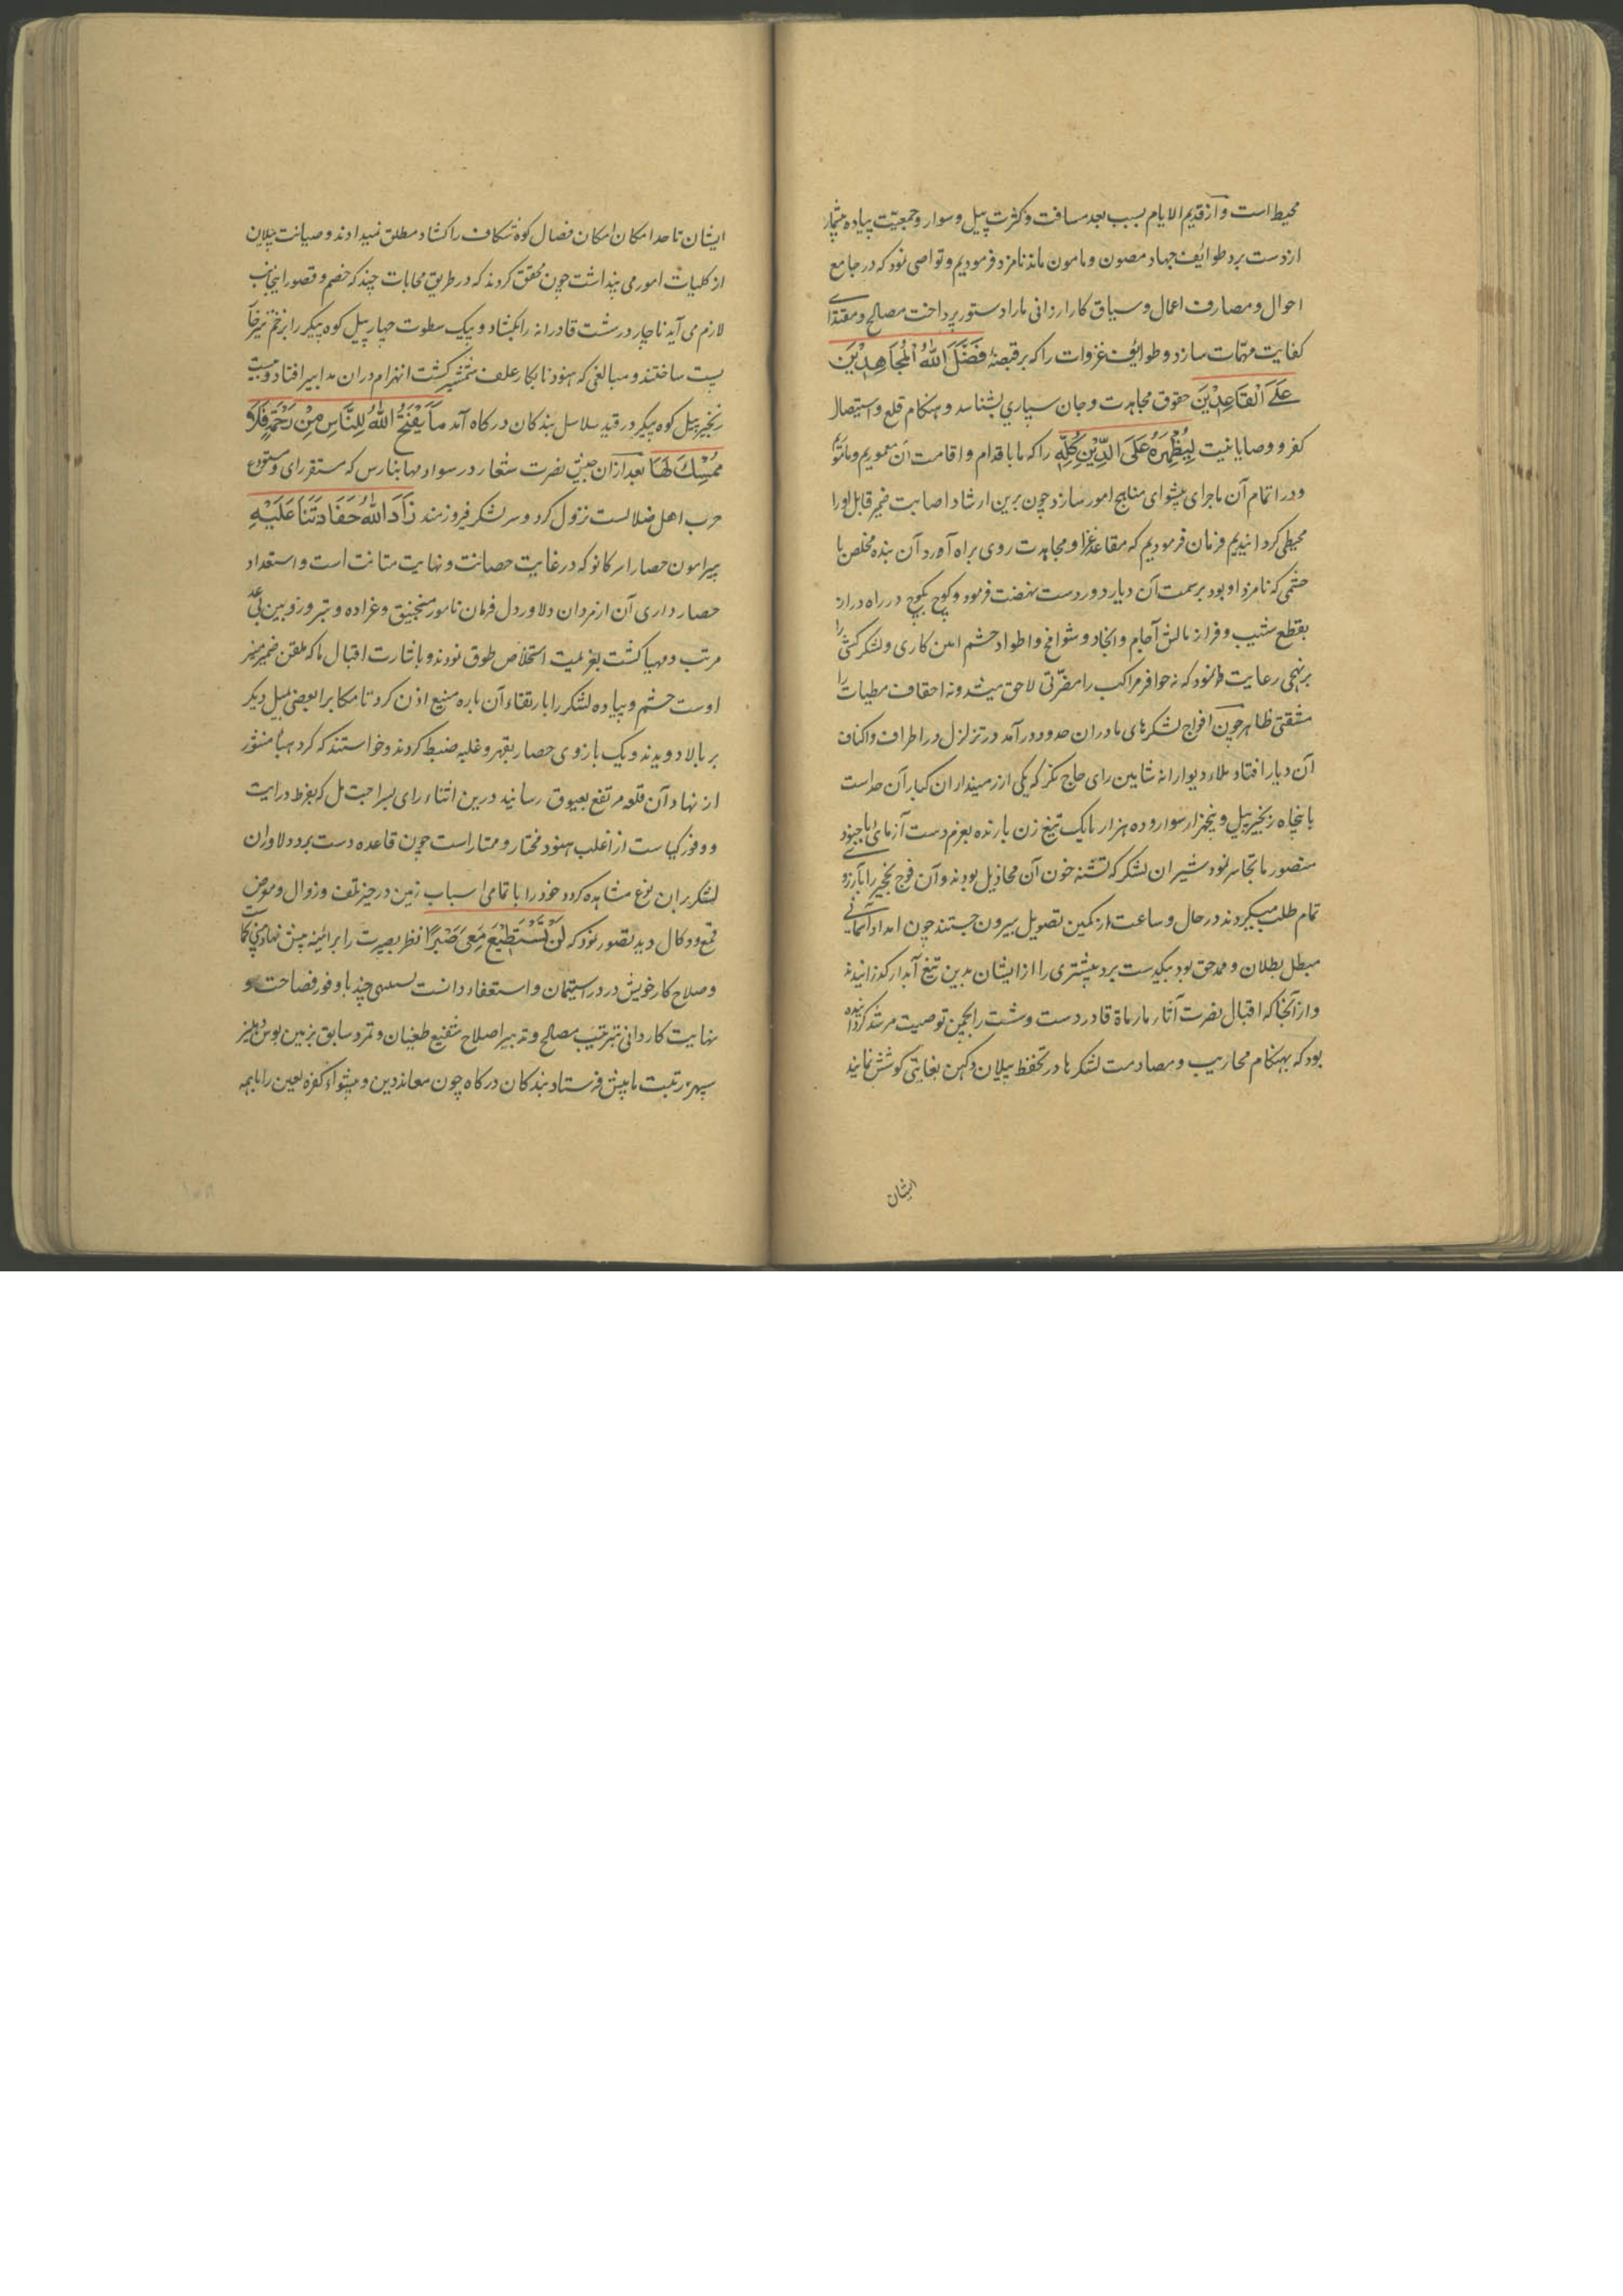 محیط است و از قدیم الایام بسبب بعد مسافت و کثرت پیل و سوار و جمعیت پیاده بیشمار
از دست برد طوایف جهاد مصون و مامون مانده نامزد فرمودیم و تواصی نمود که در جامع
احوال و مصارف اعمال و سیاق کارا رزانی ما را دستور پرداخت مصالح و مقتدای
کفایت مهمات سازد و طوایف غزوات را که بر قبضهٔ فَضَّلَ اللّٰهُ الْمُجَاهِدِيْنَ
عَلَى الْقَاعِدِيْنَ حقوق مجاهدت و جان سپاری بشناسد و هنکام قلع و استیصال
کفر و وصایا نیت لِيُظْهِرَهُ عَلَى الدِّيْنِ كُلِّهِ را که ما باقدام و اقامت آن معموریم و ماثور
و در اتمام آن ماجرای پیشوای مناهج امور سازد چون برین ارشاد اصابت غیر قابل او را
محیطی کردانیدیم فرمان فرمودیم که مقاعد غزا و مجاهدت روی براه آورد آن بنده مخلص با
حشمی که نامزد او بود بر سمت آن دیار دوردست نهضت فرمود و کوچ بکوچ در راه دراز
بقطع شیب و فراز مالش آجام و انجاد و شوامخ و اطواد حشم امن کاری و لشکر کشی را
برنهجی رعایت نمود که نه حوافر مراکب را مضرتی لاحق میشد و نه احقاف مطیات را
مشقتی ظاهر چون افواج لشکرهای ما دران حدود در آمد در تزلزل در اطراف و اکناف
آن دیار افتاد ملاء دیوارانه شابین رای حاج نکر که یکی از زمینداران کبار آن حد است
با پنجاه زنجیر پیل و پنجهزار سوار و ده هزار پایک تیغ زن بارنده بعزم دست آزمای با جنود
منصور ما تجاسر نمود شیران لشکر که تشنه خون آن مخاذیل بودند و آن فوج نخجیر را بآرزوی
تمام طلب میکردند در حال و ساعت از کمین تصویل بیرون جستند چون امداد آسمانی
مبطل بطلان و ممد حق بود بیکدست برد بیشتری را از ایشان بدین تیغ آبدار کذرانیدند
و از آنجا که اقبال نصرت آثار ما رماة قادر دست و شست را بچین توصیت مرشد کردانیده
بود که بهنکام محاریب و مصادمت لشکرها در تحفظ پیلان دکهن بغایتی کوشش نمایند
ایشان
ایشان تا حد امکان امکان فصال کوه شکاف را کشاد مطلق نمیدادند و صیانت پیلان
از کلیات امور می پنداشت چون محقق کردند که در طریق محابات چند که خصم و قصور ایجانب
لازم می آید ناچار در شست قادرانه را بکشاد و بیک سطوت چهار پیل کوه پیکر را بزخم تیر خارا
پست ساختند و مبالغی که هنود نابکار علف شمشیر کشت انهزام دران مدابیر افتاد و بیست
زنجیر پیل کوه پیکر در قید سلاسل بندکان درکاه آمد مَا يَفْتَحُ اللّٰهُ لِلنَّاسِ مِنْ رَحْمَةٍ فَلَا
مُمْسِكَ لَهَا بعد ازان جیش نصرت شعار در سواد مها بنارس که مستقر رای و مستودع
حرب اهل ضلالست نزول کرد و سر لشکر فیروزمند زَادَ اللّٰهُ حَفَادَتَنَا عَلَيْهِ
پیرامون حصار اسر کانو که در غایت حصانت و نهایت متانت است و استعداد
حصار داری آن از مردان دلاور دل فرمان نامور منجنیق و غراده و تبر و زوبین بی عد
مرتب و مهیا کشت بعزیمت استخلاص طوق نمودند و باشارت اقبال ما که ملقن ضمیر منیر
اوست حشم و پیاده لشکر را بارتقاء آن باره منیع اذن کرد تا مکابرا بعضی بیل دیکر
بر بالا دویدند و یک بازوی حصار بقهر و غلبه ضبط کردند و خواستند که کرد هباء منثور
از نهاد آن قلعه مرتفع بعیوق رسانید درین اثناء رای بسراجت مل که بفرط درایت
و وفور کیاست از اغلب هنود مختار و ممتاز است چون قاعده دست برد دلاوران
لشکر بران نوع مشاهده کرد و خود را با تمامی اسباب زمین در حیز تلف و زوال و معرض
قمع و دکال دید تصور نمود که لَنْ تَسْتَطِيْعَ مَعِيَ صَبْرًا نظر بصیرت را بر ائینه پیش نهاد
و صلاح کار خویش در در استیمان و استعفاء دانست بسیسی چند با وفور فصاحت و
نهایت کاردانی بترتیب مصالح و تدبیر اصلاح شفیع طغیان و تمرد سابق بزمین بوس دهلیز
سپهر رتبت ما پیش فرستاد بندکان درکاه چون معاندین و پیشواء کفره لعین را با همه